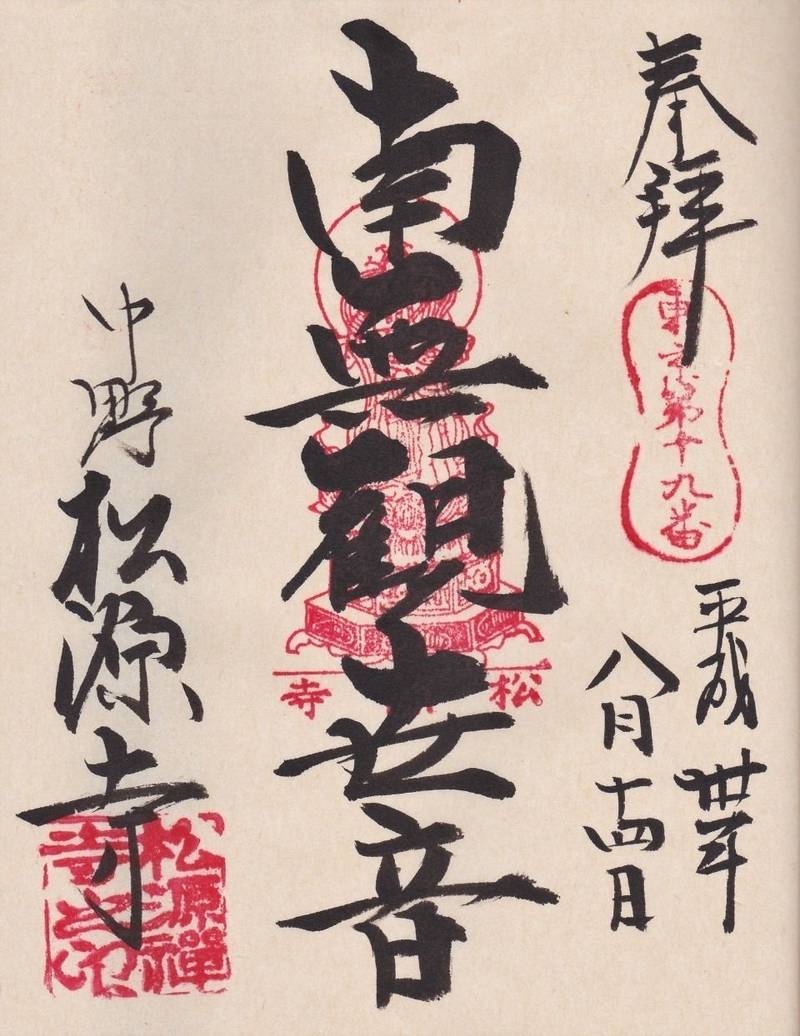 奉拝
第十九番
平成丗年
八月十四日
南無觀世音
松源寺
中野
松源寺
松源禪
寺之印